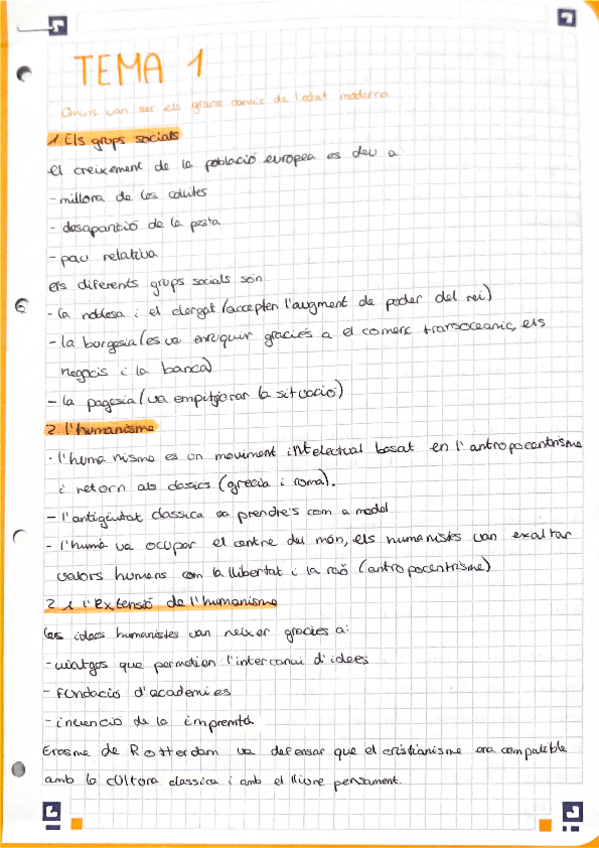 TEMA 1
Quins van ser els grans canvis de l'edat moderna
1 Els grups socials
el creixement de la població europea es deu a:
- millora de les collites
- desaparició de la pesta
- pau relativa
els diferents grups socials són:
- la noblesa i el clergat (accepten l'augment de poder del rei)
- la burgesia (es va enriquir gracies a el comerç transoceanic, els
negocis i la banca)
- la pagesia (va empitjorar la situacio)
2 l'humanisme
· l'huma nisme es un moviment intelectual basat en l'antropocentrisme
i retorn als classics (grecia i roma).
- l'antigüitat classica va prendre's com a model
- l'humà va ocupar el centre du món, els humanistes van exaltar
valors humans com la llibertat i la raó (antropocentrisme)
2.1 l'extensió de l'humanisme
les idees humanistes van neixer gracies a:
- viatges que permetien l'intercanvi d'idees
- fundacio d'academies
- invencio de la impremta
Erasme de Rotterdam va defensar que el cristianisme era compatible
amb la cultura classica i amb el lliure pensament.